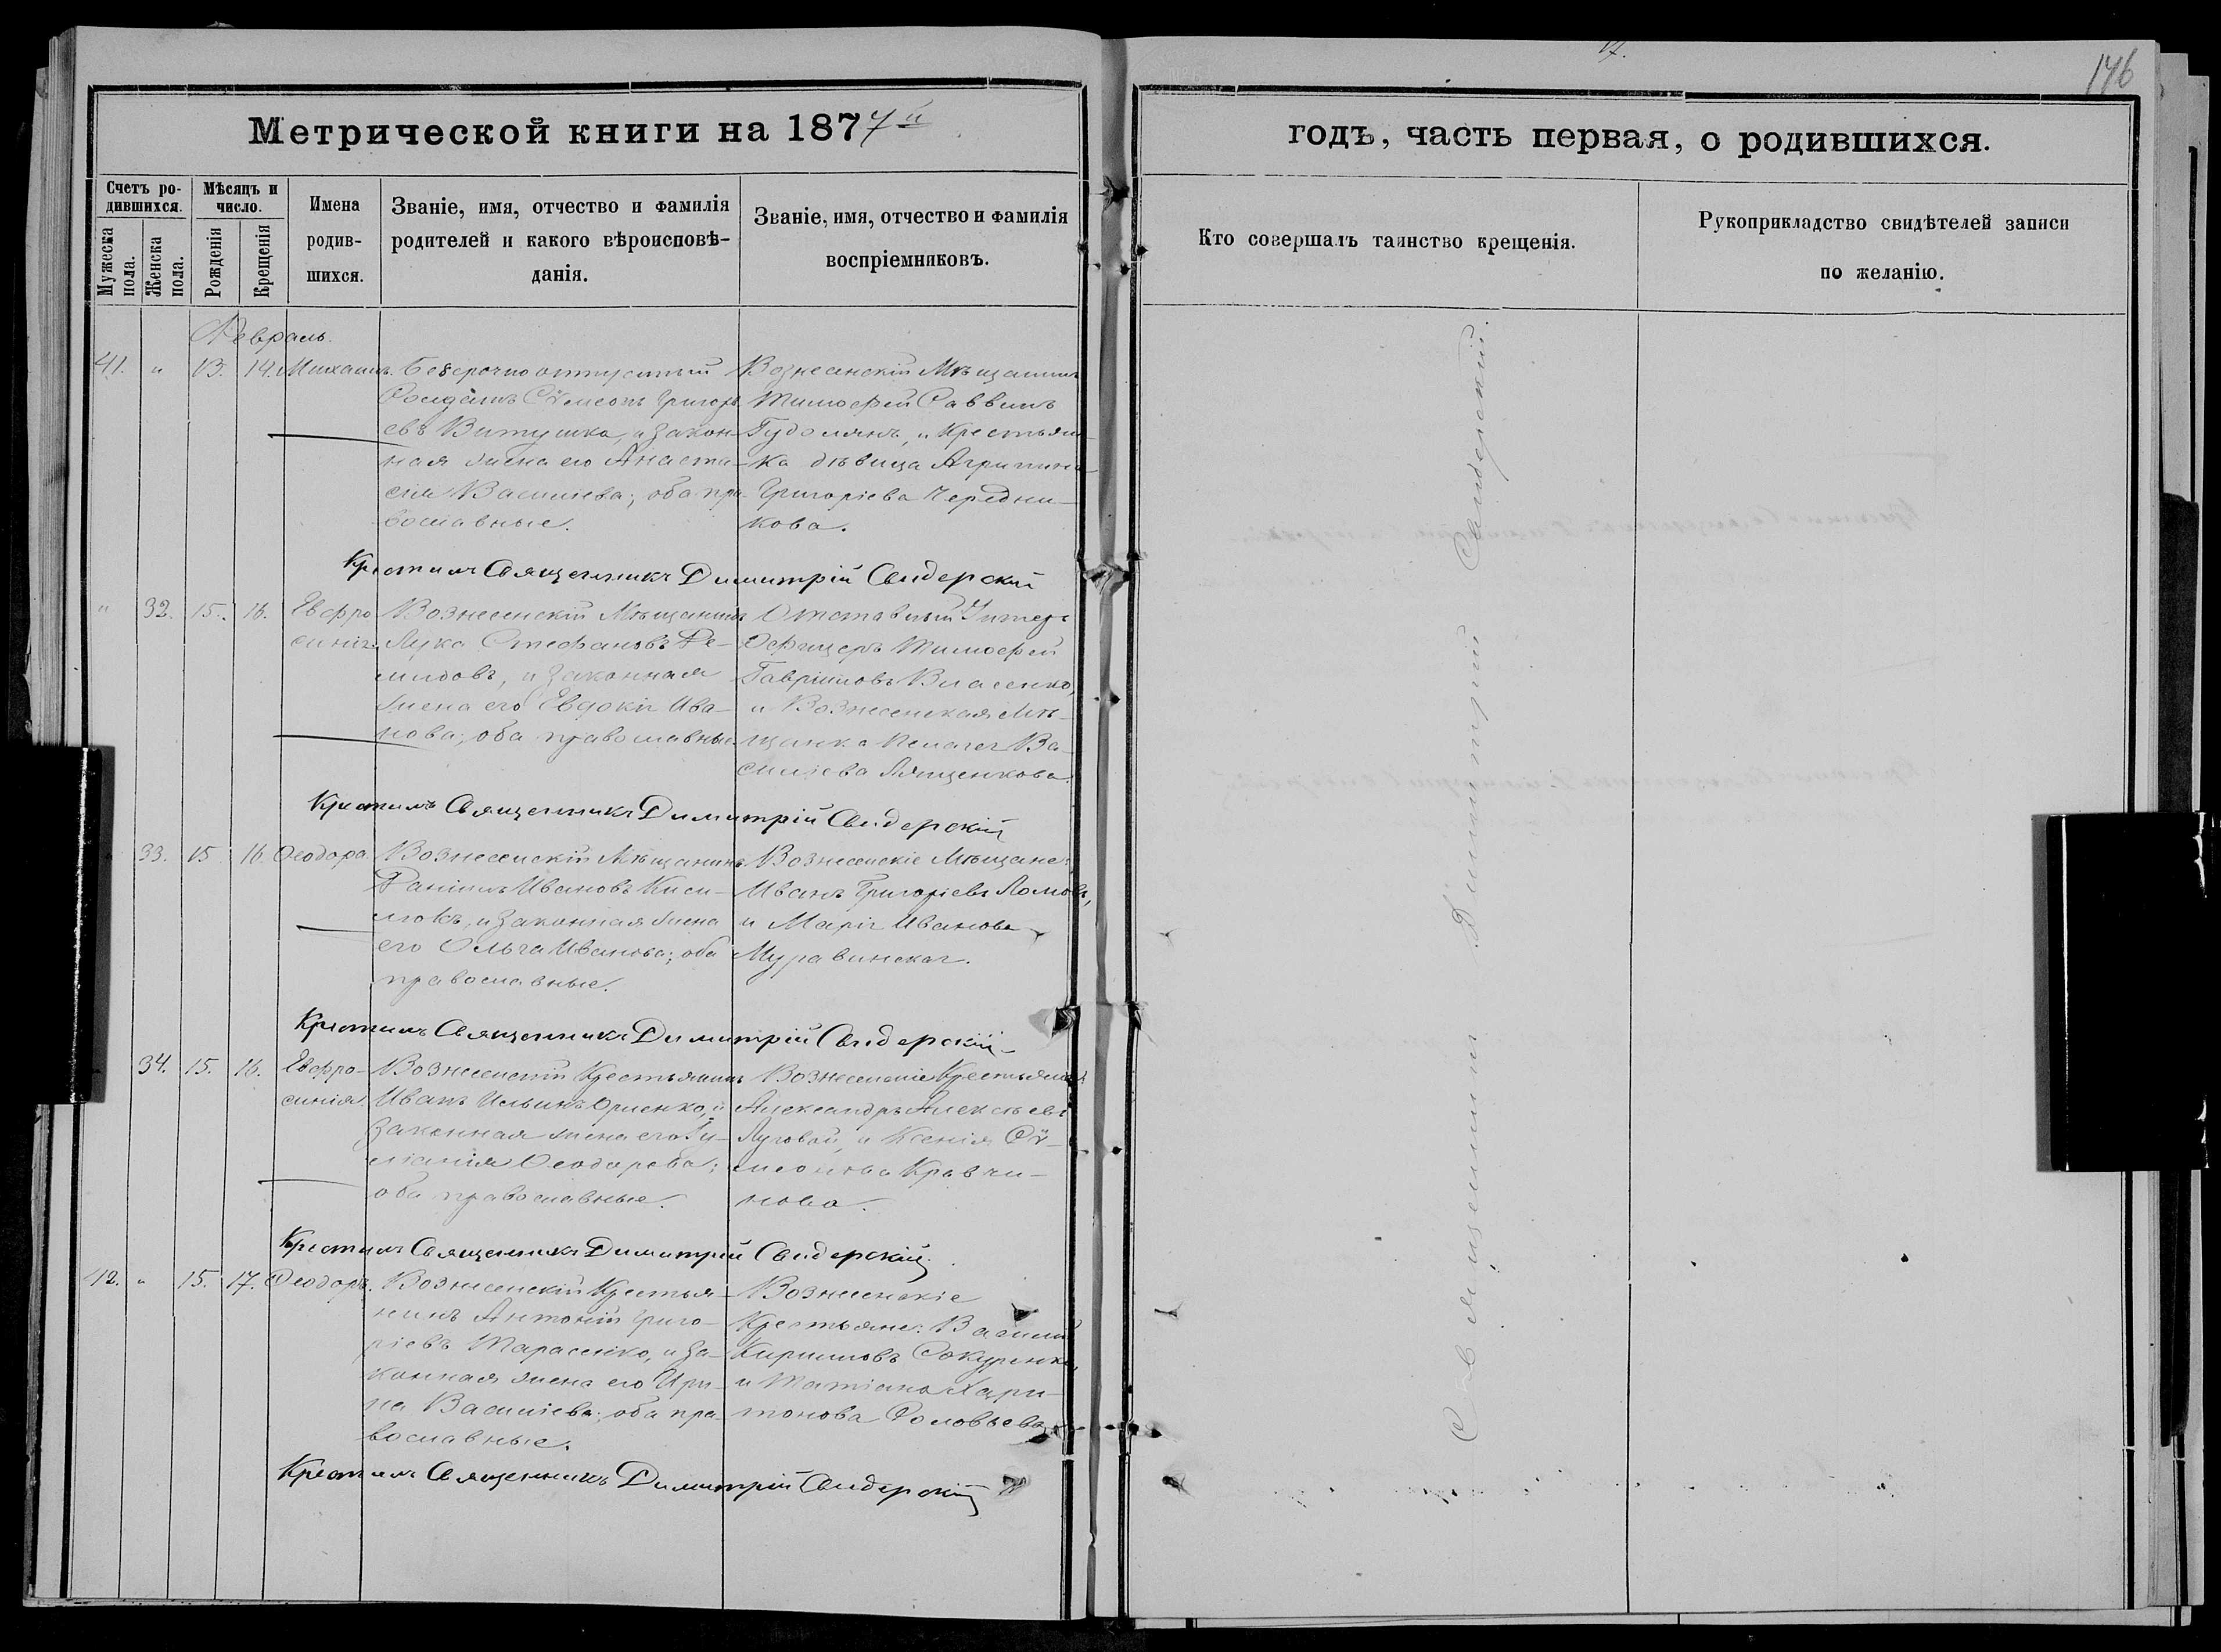 17.
146
Метрической книги на 1877й
годъ, часть первая, о родившихся.
Счетъ ро-
дившихся.
Мужеска
пола.
Женска
пола.
Мѣсяцъ и
число.
Рожденія
Крещенія
Имена
родив-
шихся.
Званіе, имя, отчество и фамилія
родителей и какого вѣроисповѣ-
данія.
Званіе, имя, отчество и фамилія
воспріемниковъ.
Кто совершалъ таинство крещенія.
Рукоприкладство свидѣтелей записи
по желанію.
Февраль.
41. " 13. 14. Михаилъ. Безсрочно отпустный
Солдатъ Сѵмеонъ Григорь-
евъ Витушка, и закон-
ная жена его Анаста-
сія Васильева; оба пра-
вославные.
Вознесенскій Мѣщанинъ
Тимофей Саввинъ
и Крестьян-
ка дѣвица Агрипина
Григоріева Чередни-
кова.
Крестилъ Священникъ Димитрій Свидерскій
" 32. 15. 16. Евфро-
синія.
Вознесенскій Мѣщанинъ
Лука Стефановъ Де-
мидовъ, и законная
жена его Евдокія Ива-
нова; оба православные.
Отставный Унтеръ
Офицеръ Тимофей
Гавріиловъ Власенко,
и Вознесенская Мѣ-
щанка Пелагея Ва-
сильева Лященкова.
Крестилъ Священникъ Димитрій Свидерскій
33. 15 16 Ѳеодора
Вознесенскій Мѣщанинъ
Даніилъ Ивановъ Кися-
локъ, и законная жена
его Ольга Иванова; оба
православные.
Вознесенскіе Мѣщане:
Иванъ Григоріевъ Ломовъ,
и Марія Иванова
Муравинская.
Крестилъ Священникъ Димитрій Свидерскій
34. 15. 16. Евфро-
синія.
Вознесенскій Крестьянинъ
Иванъ Ильинъ Орленко, и
законная жена его Іу-
ліанія Ѳеодорова;
оба православные.
Вознесенскіе Крестьяне:
Александръ Алексѣевъ
Луговой, и Ксенія Сѵ-
меонова Кравчи-
нова.
Крестилъ Священникъ Димитрій Свидерскій.
42. " 15. 17. Ѳеодоръ.
Вознесенскій Крестья-
нинъ Антоній Григо-
ріевъ Тарасенко, и за-
конная жена его Ири-
на Васильева; оба пра-
вославные.
Вознесенскіе
Крестьяне: Василій
Кирилловъ Сокуренко,
и Татіана Хари-
тонова Соловьева
Крестилъ Священникъ Димитрій Свидерскій
Священникъ Димитрій Свидерскій.